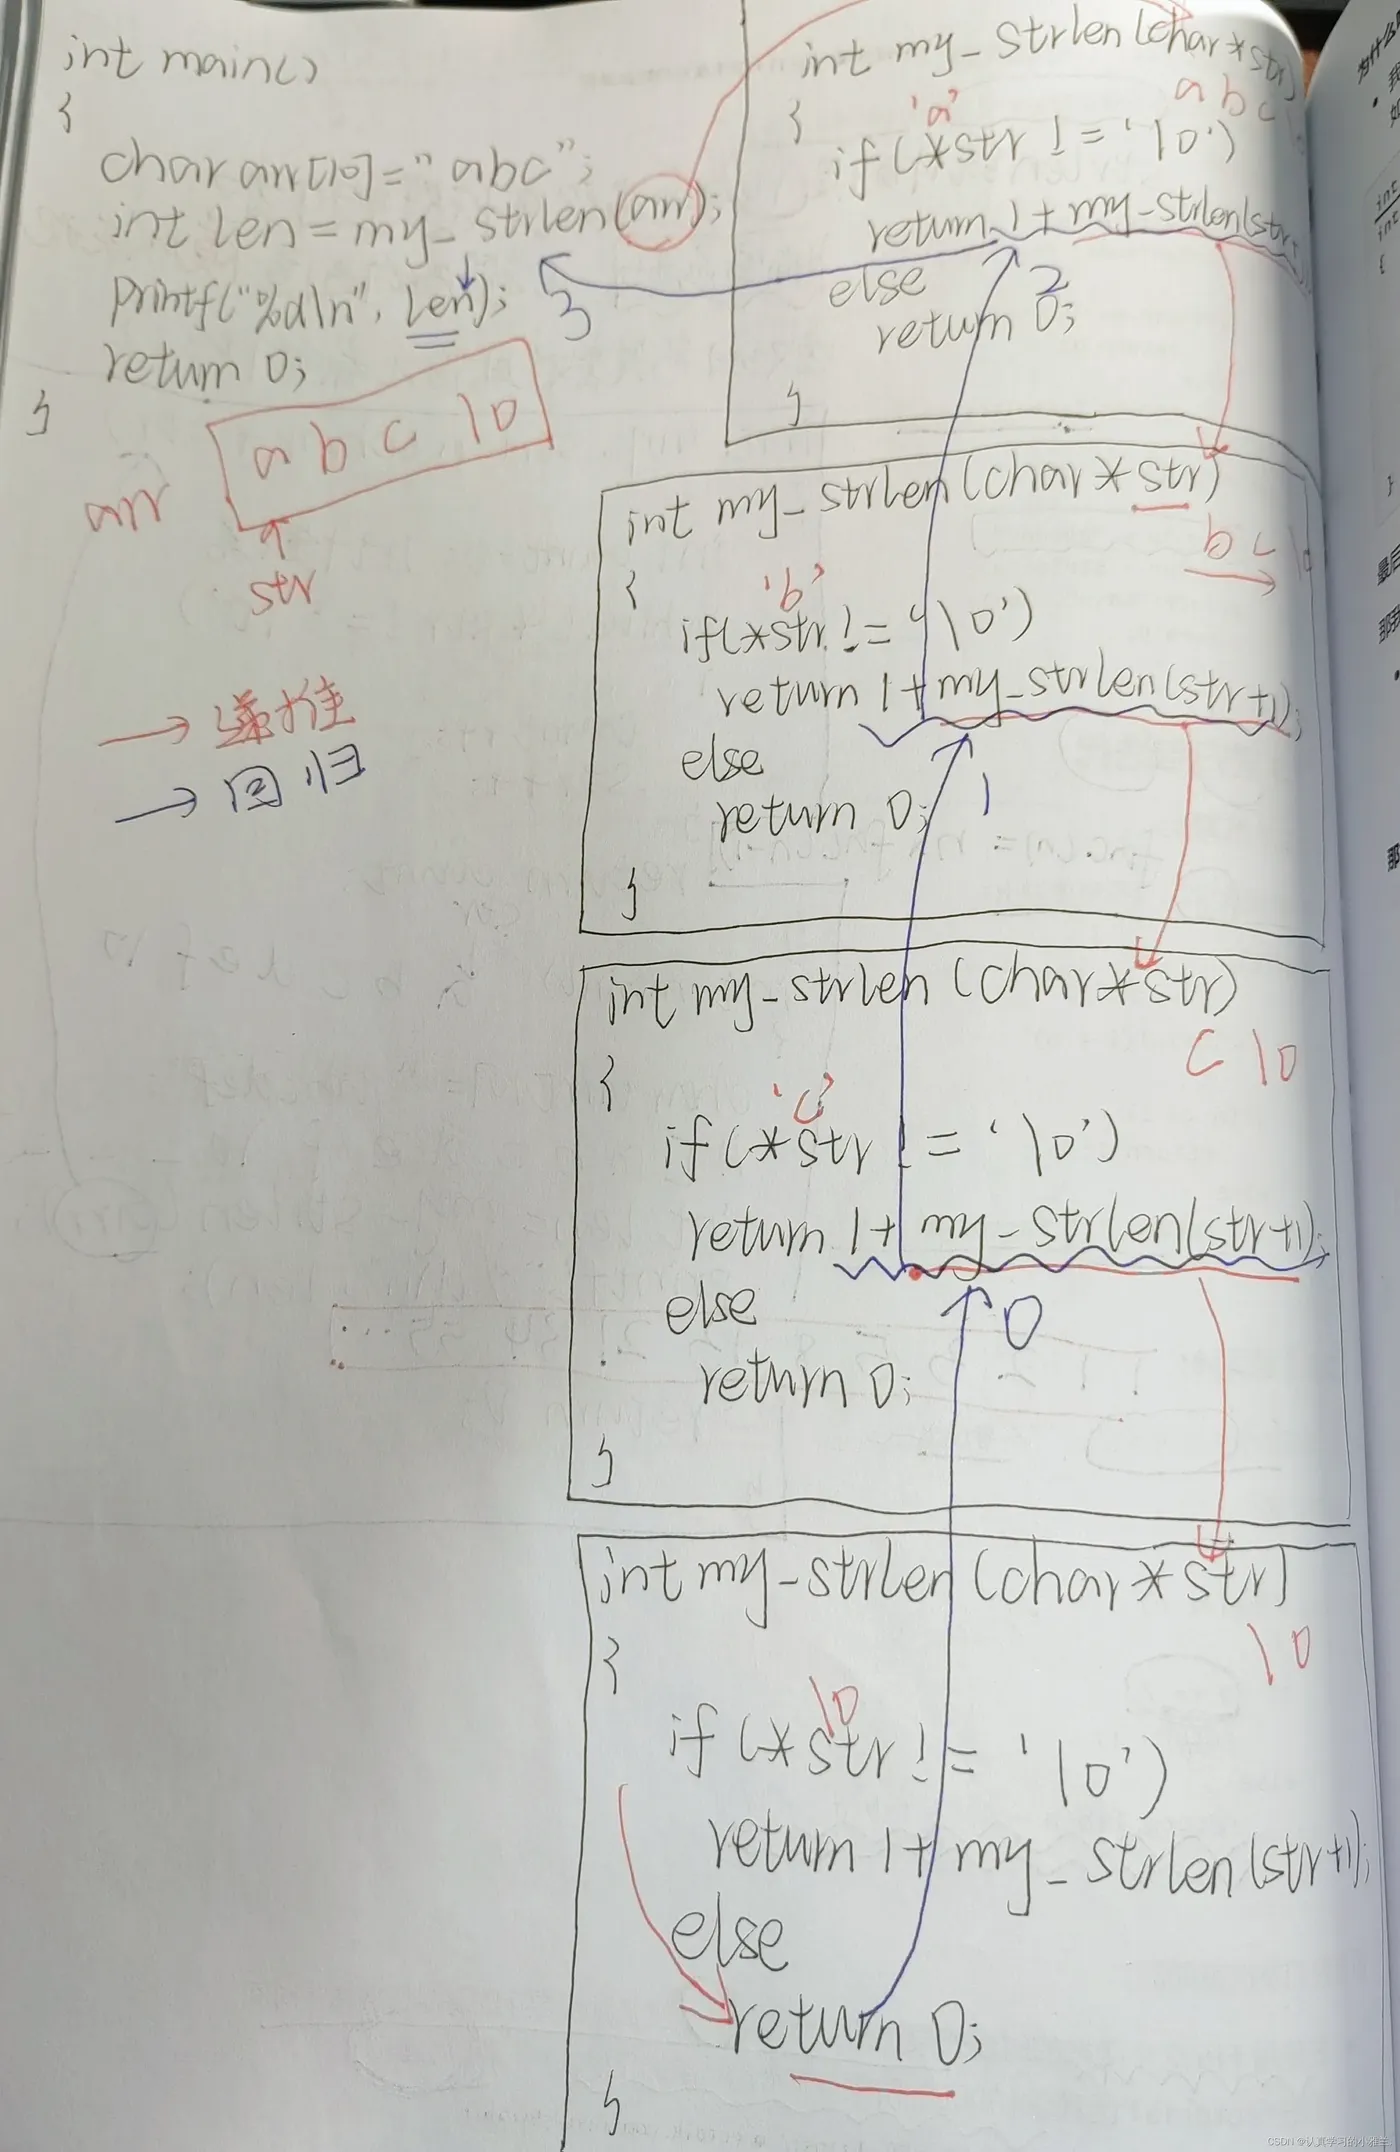 int main()
{
char arr[10]="abc";
int len=my_strlen(arr);
printf("%d\n", len);
return 0;
}
3
a b c \0
arr
str
→ 递推
→ 回归
int my_strlen(char*str)
a b c
{
'a'
if(*str != '\0')
return 1+my_strlen(str+
else
2
return 0;
}
int my_strlen(char*str)
b c \0
{
'b'
if(*str != '\0')
return 1+my_strlen(str+1);
else
1
return 0;
}
int my_strlen(char*str)
c \0
{
'c'
if(*str != '\0')
return 1+my_strlen(str+1);
else
0
return 0;
}
int my_strlen(char*str)
\0
{
\0
if(*str != '\0')
return 1+my_strlen(str+1);
else
return 0;
}
为什么
我
如
int
int
{
}
最后
那我
那